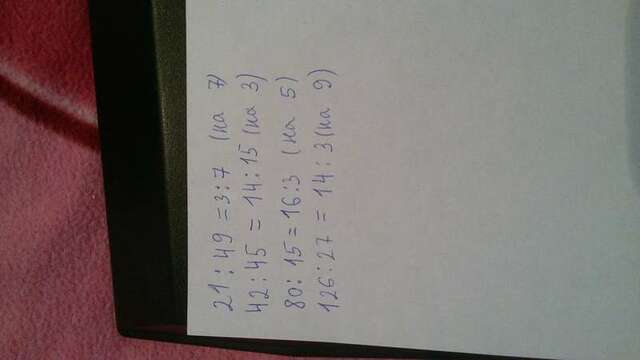 21:49=3:7 (на 7)
42:45=14:15 (на 3)
80:15=16:3 (на 5)
126:27=14:3 (на 9)